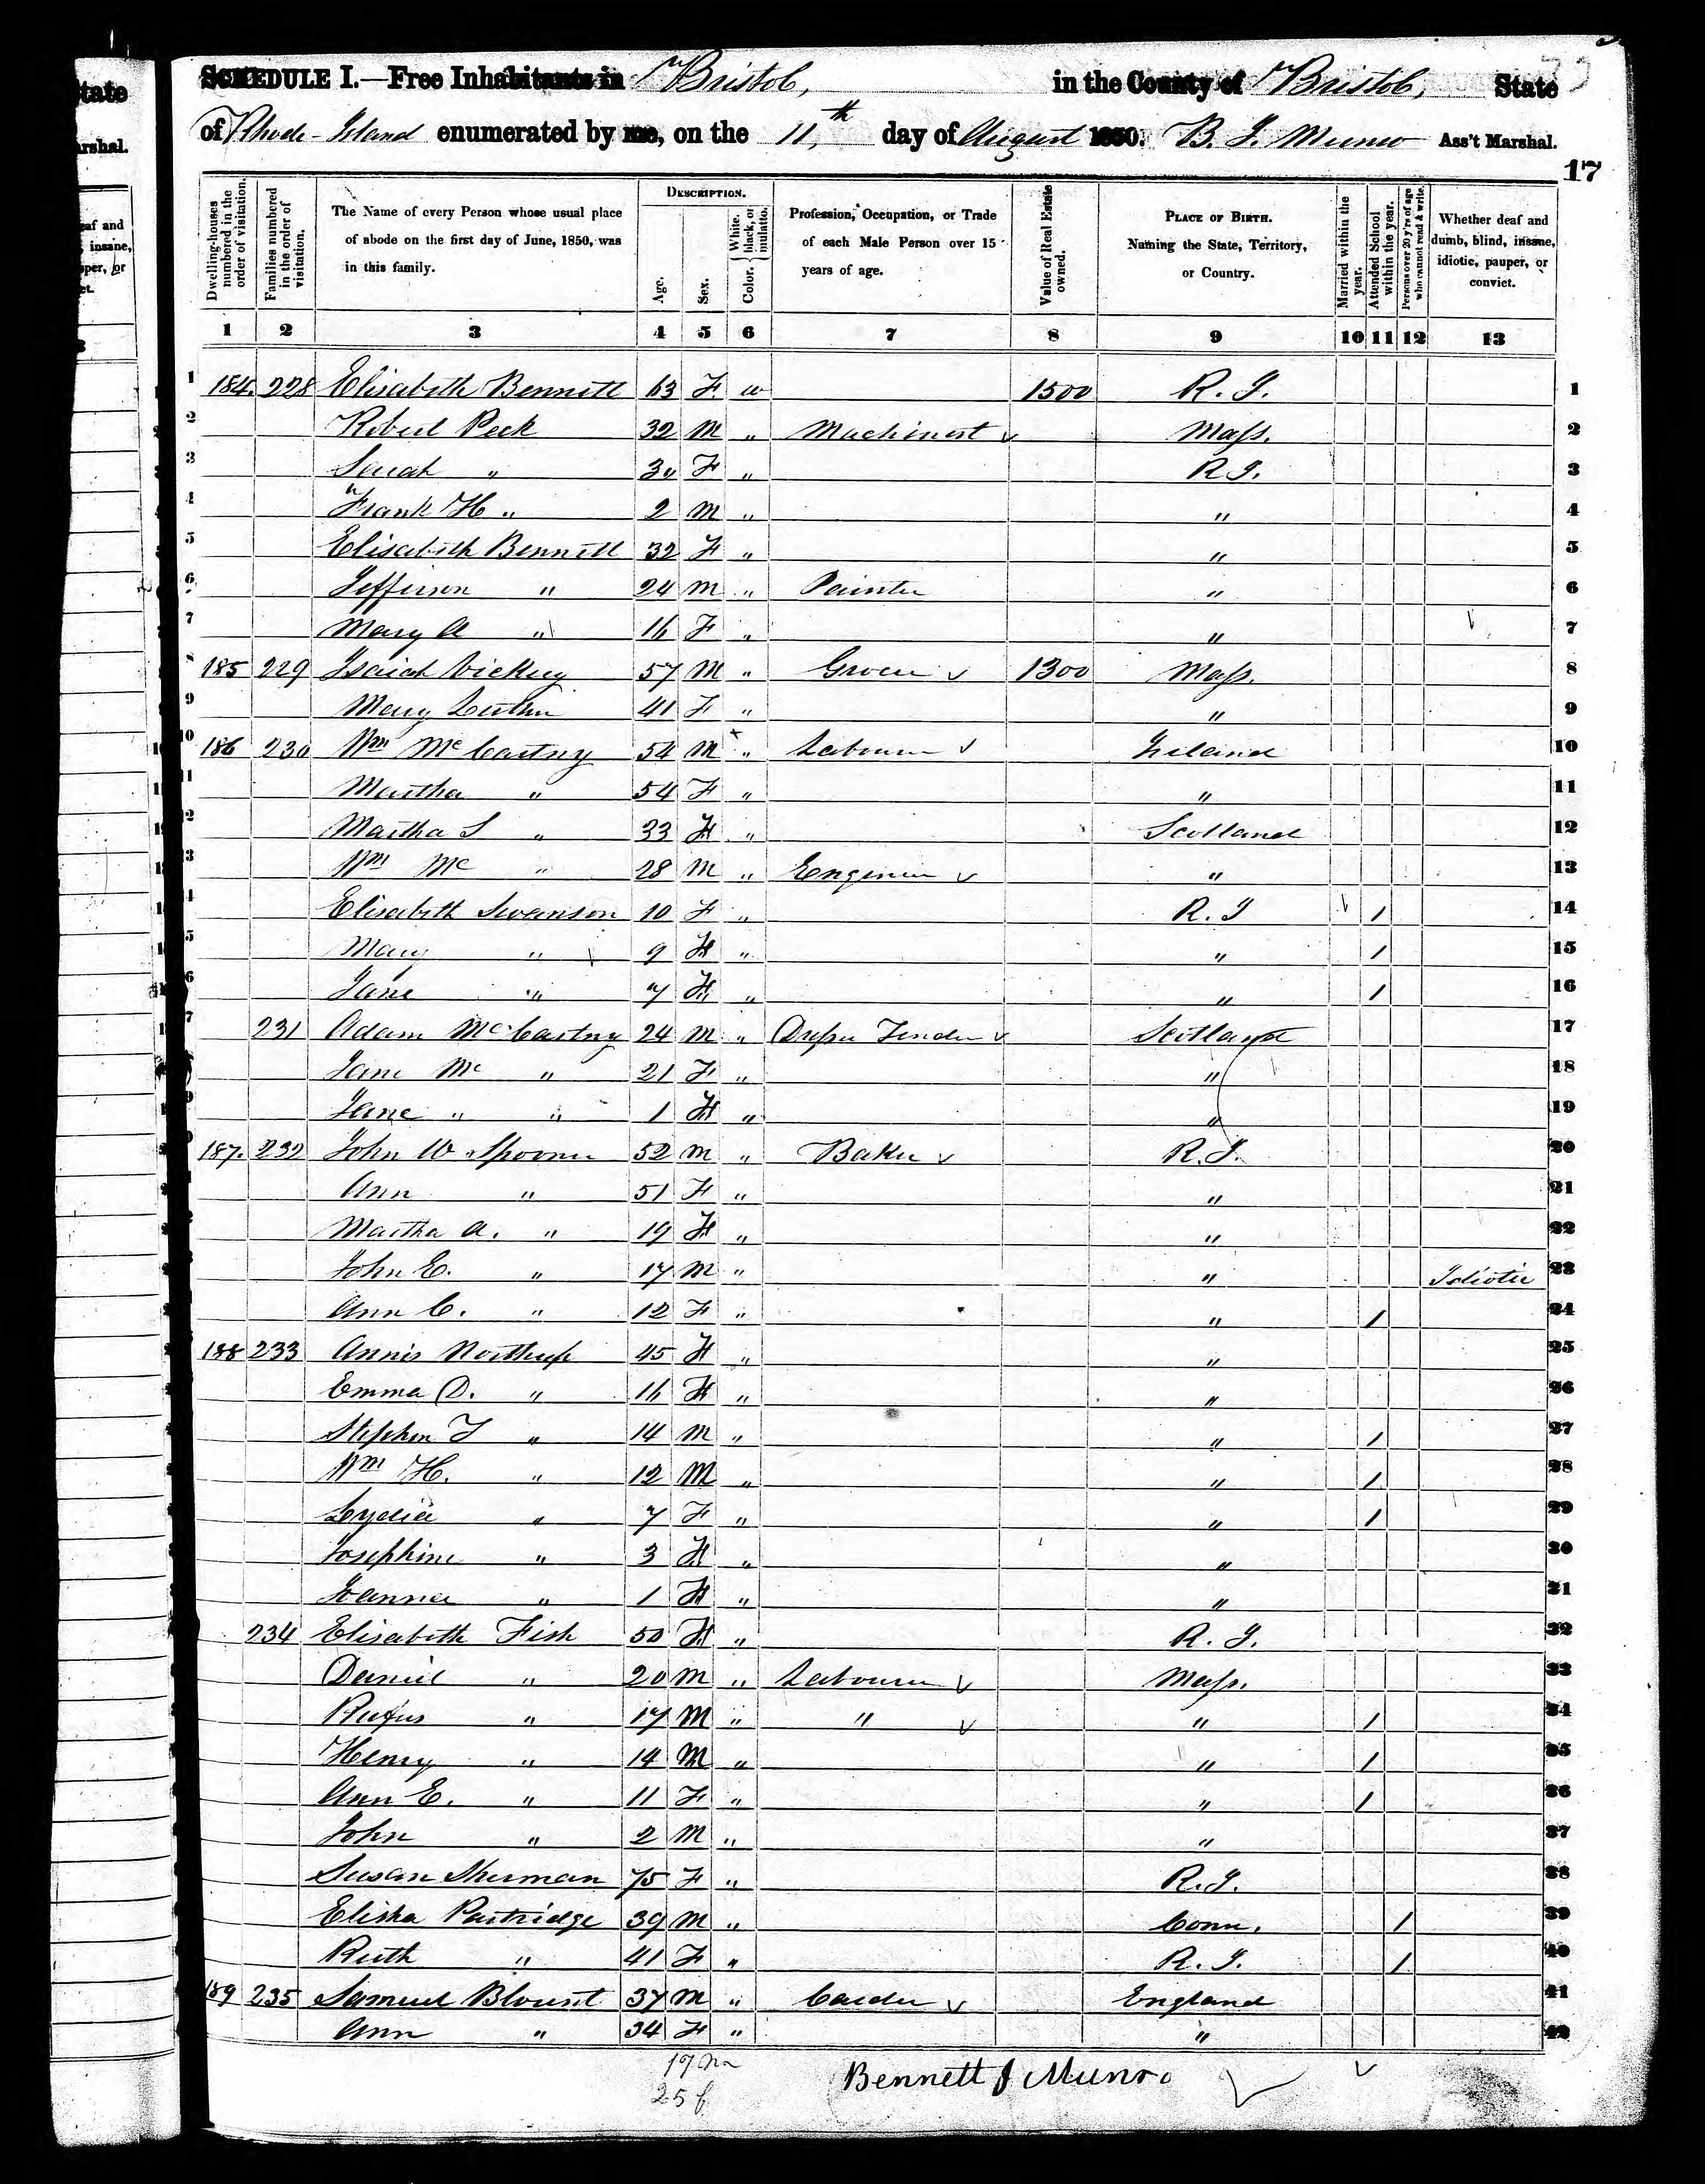 SCHEDULE I.—Free Inhabitants in Bristol, in the County of Bristol, State
of Rhode-Island enumerated by me, on the 11,th day of August 1850. B. J. Munro Ass't Marshal.
17
Dwelling-houses numbered in the order of visitation.
Families numbered in the order of visitation.
The Name of every Person whose usual place of abode on the first day of June, 1850, was in this family.
DESCRIPTION.
Age.
Sex.
Color. { White, black, or mulatto.
Profession, Occupation, or Trade of each Male Person over 15 years of age.
Value of Real Estate owned.
PLACE OF BIRTH. Naming the State, Territory, or Country.
Married within the year.
Attended School within the year.
Persons over 20 y'rs of age who cannot read & write.
Whether deaf and dumb, blind, insane, idiotic, pauper, or convict.
1 2 3 4 5 6 7 8 9 10 11 12 13
1 184. 228 Elisabeth Bennett 63 F. w 1500 R. I. 1
2 Robert Peck 32 M " Machinest Mass. 2
3 Sarah " 30 F " R I. 3
4 Frank H " 2 M " " 4
5 Elisabeth Bennett 32 F " " 5
6 Jefferson " 24 M " Painter " 6
7 Mary A " 16 F " " 7
8 185 229 Isaiah Vickery 57 M " Grocer 1300 Mass. 8
9 Mary Luther 41 F " " 9
10 186 230 Wm McCartny 54 M " Labourer Ireland 10
11 Martha " 54 F " " 11
12 Martha S " 33 F " Scotland 12
13 Wm Mc " 28 M " Engineer " 13
14 Elisabeth Swanson 10 F " R. I / 14
15 Mary " 9 F " " / 15
16 Jane " 7 F " " / 16
17 231 Adam McCartny 24 M " Tender Scotland 17
18 Jane Mc " 21 F " " 18
19 Jane " " 1 F " " 19
187. 232 John W Spooner 52 M " Baker R. I. 20
Ann " 51 F " " 21
Martha A. " 19 F " " 22
John E. " 17 M " " Idiotic 23
Ann C. " 12 F " " / 24
188 233 Annis Northup 45 F " " 25
Emma D. " 16 F " " 26
Stephen T " 14 M " " / 27
Wm H. " 12 M " " / 28
Lydia " 7 F " " / 29
Josephine " 3 F " " 30
Joanna " 1 F " " 31
234 Elisabeth Fish 50 F " R. I. 32
Daniel " 20 M " Labourer Mass. 33
Rufus " 17 M " " " / 34
Henry " 14 M " " / 35
Ann E. " 11 F " " / 36
John " 2 M " " 37
Susan Sherman 75 F " R. I. 38
Elisha Partridge 39 M " Conn. / 39
Ruth " 41 F " R. I. / 40
189 235 Samuel Blount 37 M " Carder England 41
Ann " 34 F " " 42
17 m
25 f
Bennett J Munro